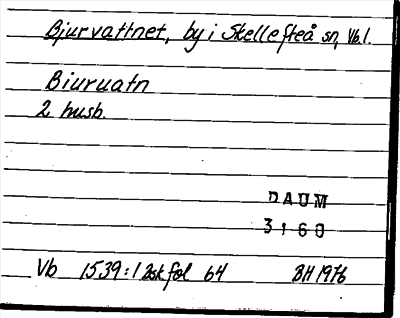 Bjurvattnet, by i Skellefteå sn, Vb.l.
Biuruatn
2 husb.
DAUM
3160
Vb 1539:12sk fol 64 BH 1976